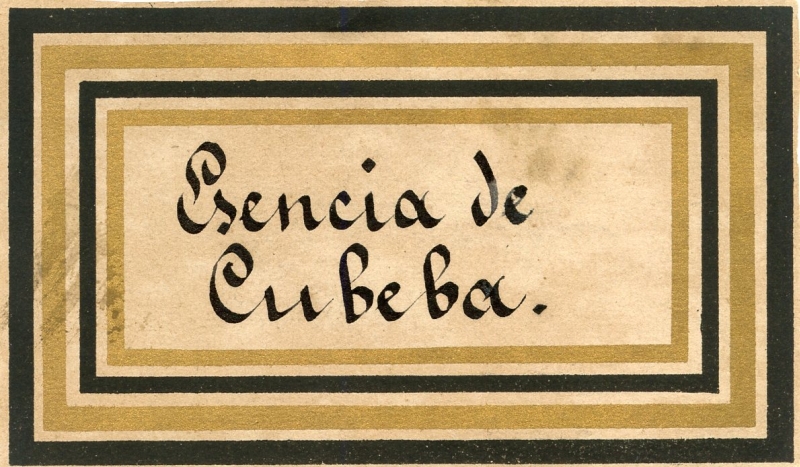 Esencia de
Cubeba.